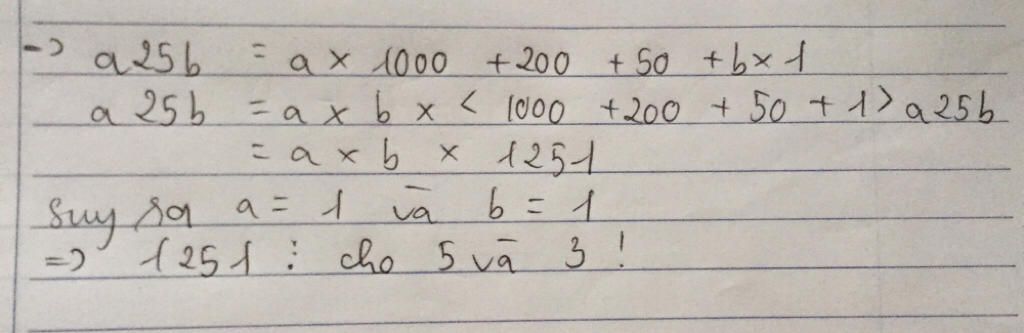 -> a25b = a x 1000 + 200 + 50 + b x 1
a 25b = a x b x < 1000 + 200 + 50 + 1 > a25b
= a x b x 1251
suy ra a = 1 và b = 1
=> 1251 ⋮ cho 5 và 3 !